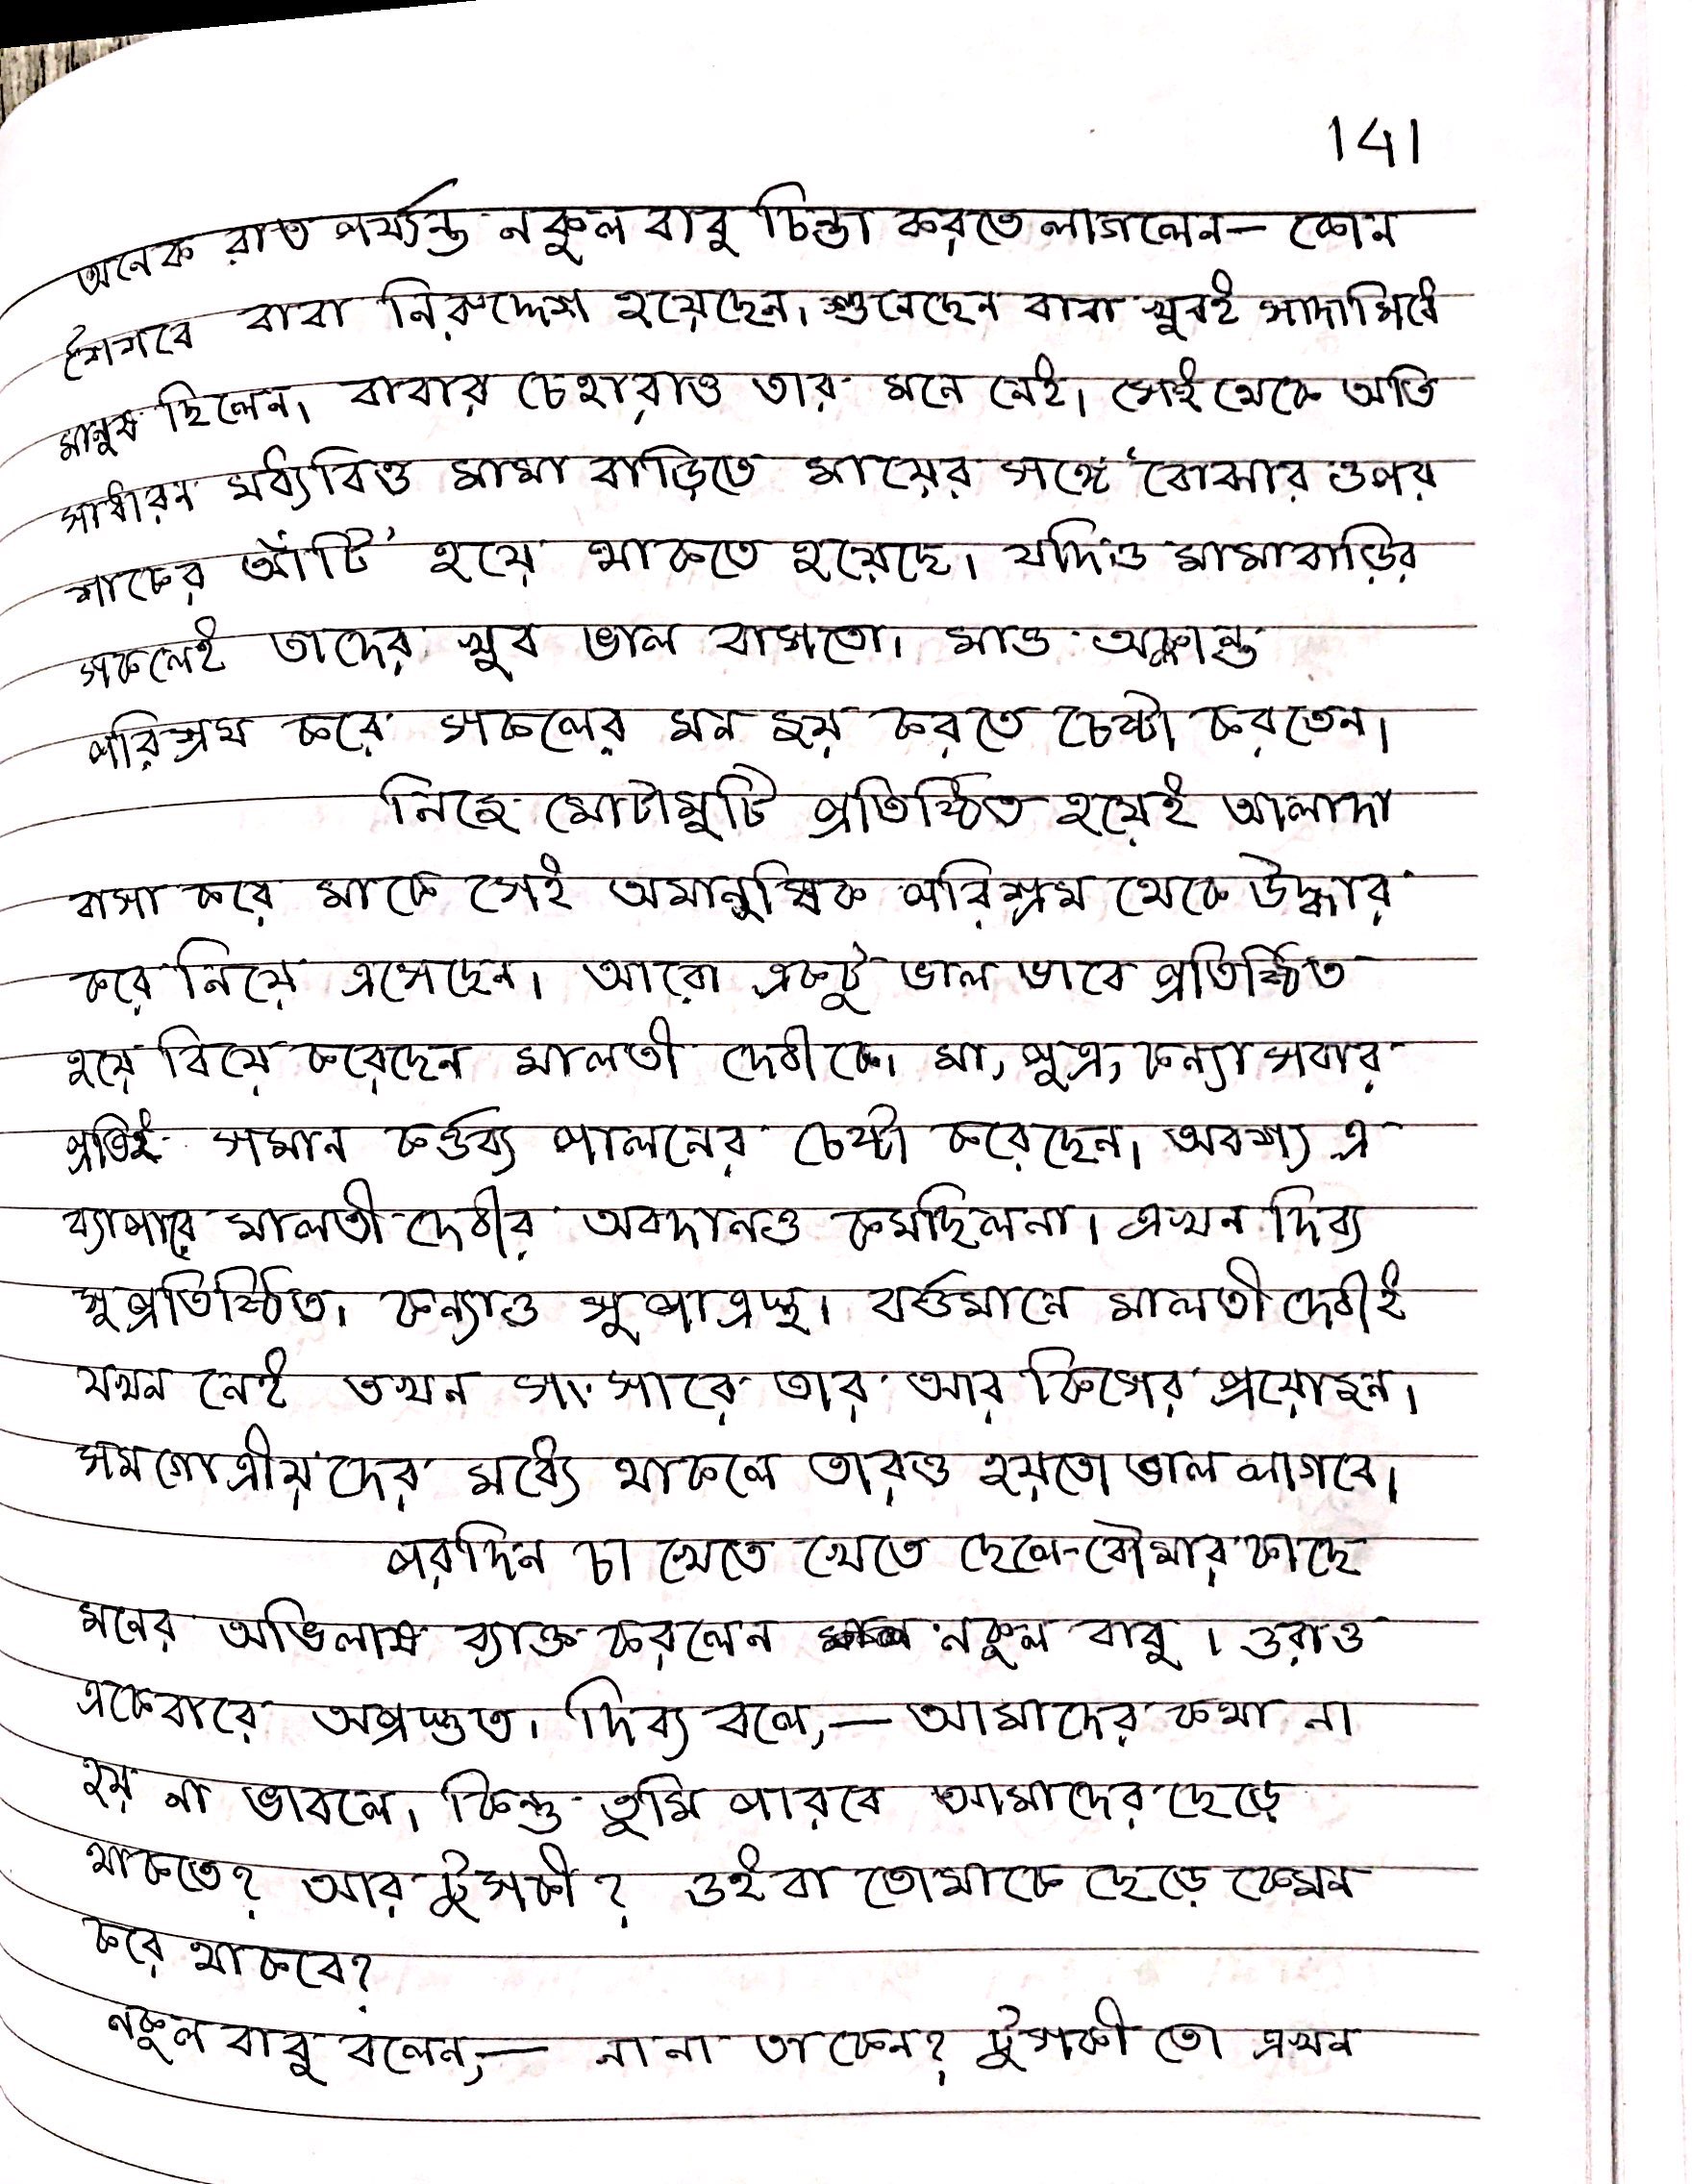 141
অনেক রাত পর্য্যন্ত নকুল বাবু চিন্তা করতে লাগলেন— কোন
শৈশবে বাবা নিরুদ্দেশ হয়েছেন। শুনেছেন বাবা খুবই সাদাসিধে
মানুষ ছিলেন। বাবার চেহারাও তার মনে নেই। সেই থেকে অতি
সাধারন মধ্যবিত্ত মামা বাড়িতে মায়ের সঙ্গে 'বোঝার ওপর
শাকের আঁটি' হয়ে থাকতে হয়েছে। যদিও মামাবাড়ির
সকলেই তাদের খুব ভাল বাসতো। মাও অক্লান্ত
পরিশ্রম করে সকলের মন জয় করতে চেষ্টা করতেন।
নিজে মোটামুটি প্রতিষ্ঠিত হয়েই আলাদা
বাসা করে মাকে সেই অমানুষিক পরিশ্রম থেকে উদ্ধার
করে নিয়ে এসেছেন। আরো একটু ভাল ভাবে প্রতিষ্ঠিত
হয়ে বিয়ে করেছেন মালতী দেবীকে। মা, পুত্র, কন্যা সবার
প্রতিই সমান কর্ত্তব্য পালনের চেষ্টা করেছেন। অবশ্য এ
ব্যাপারে মালতী দেবীর অবদানও কমছিলনা। এখন দিব্য
সুপ্রতিষ্ঠিত। কন্যাও সুপাত্রস্থ। বর্ত্তমানে মালতী দেবীই
যখন নেই তখন সংসারে তার আর কিসের প্রয়োজন।
সমগোত্রীয়দের মধ্যে থাকলে তারও হয়তো ভাল লাগবে।
পরদিন চা খেতে খেতে ছেলে-বৌমার কাছে
মনের অভিলাষ ব্যাক্ত করলেন নকুল বাবু। ওরাও
একেবারে অপ্রস্তুত। দিব্য বলে,— আমাদের কথা না
হয় না ভাবলে। কিন্তু তুমি পারবে আমাদের ছেড়ে
থাকতে? আর টুসকী? ওই বা তোমাকে ছেড়ে কেমন
করে থাকবে?
নকুল বাবু বলেন,— না না তা কেন? টুসকী তো এখন